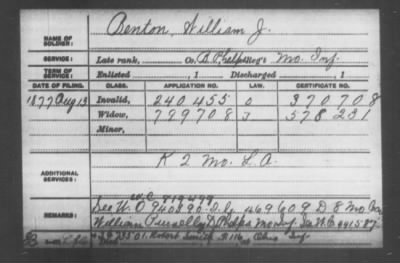 NAME OF SOLDIER: Benton, William J.
SERVICE: Late rank, Co. B, Phelps Reg't Mo. Inf.
TERM OF SERVICE: Enlisted , 1 Discharged , 1
DATE OF FILING. CLASS. APPLICATION NO. LAW. CERTIFICATE NO.
1877 Aug 13 Invalid, 240455 0 370708
Widow, 799708 3 578231
Minor,
ADDITIONAL SERVICES: K 2 Mo. L.A.
W.C. 919499
REMARKS: See W.O 940890. 469609 D 8 Mo.
William Phelps Mo Inf. See W.C. 441587
Robert Smith Ohio Inf